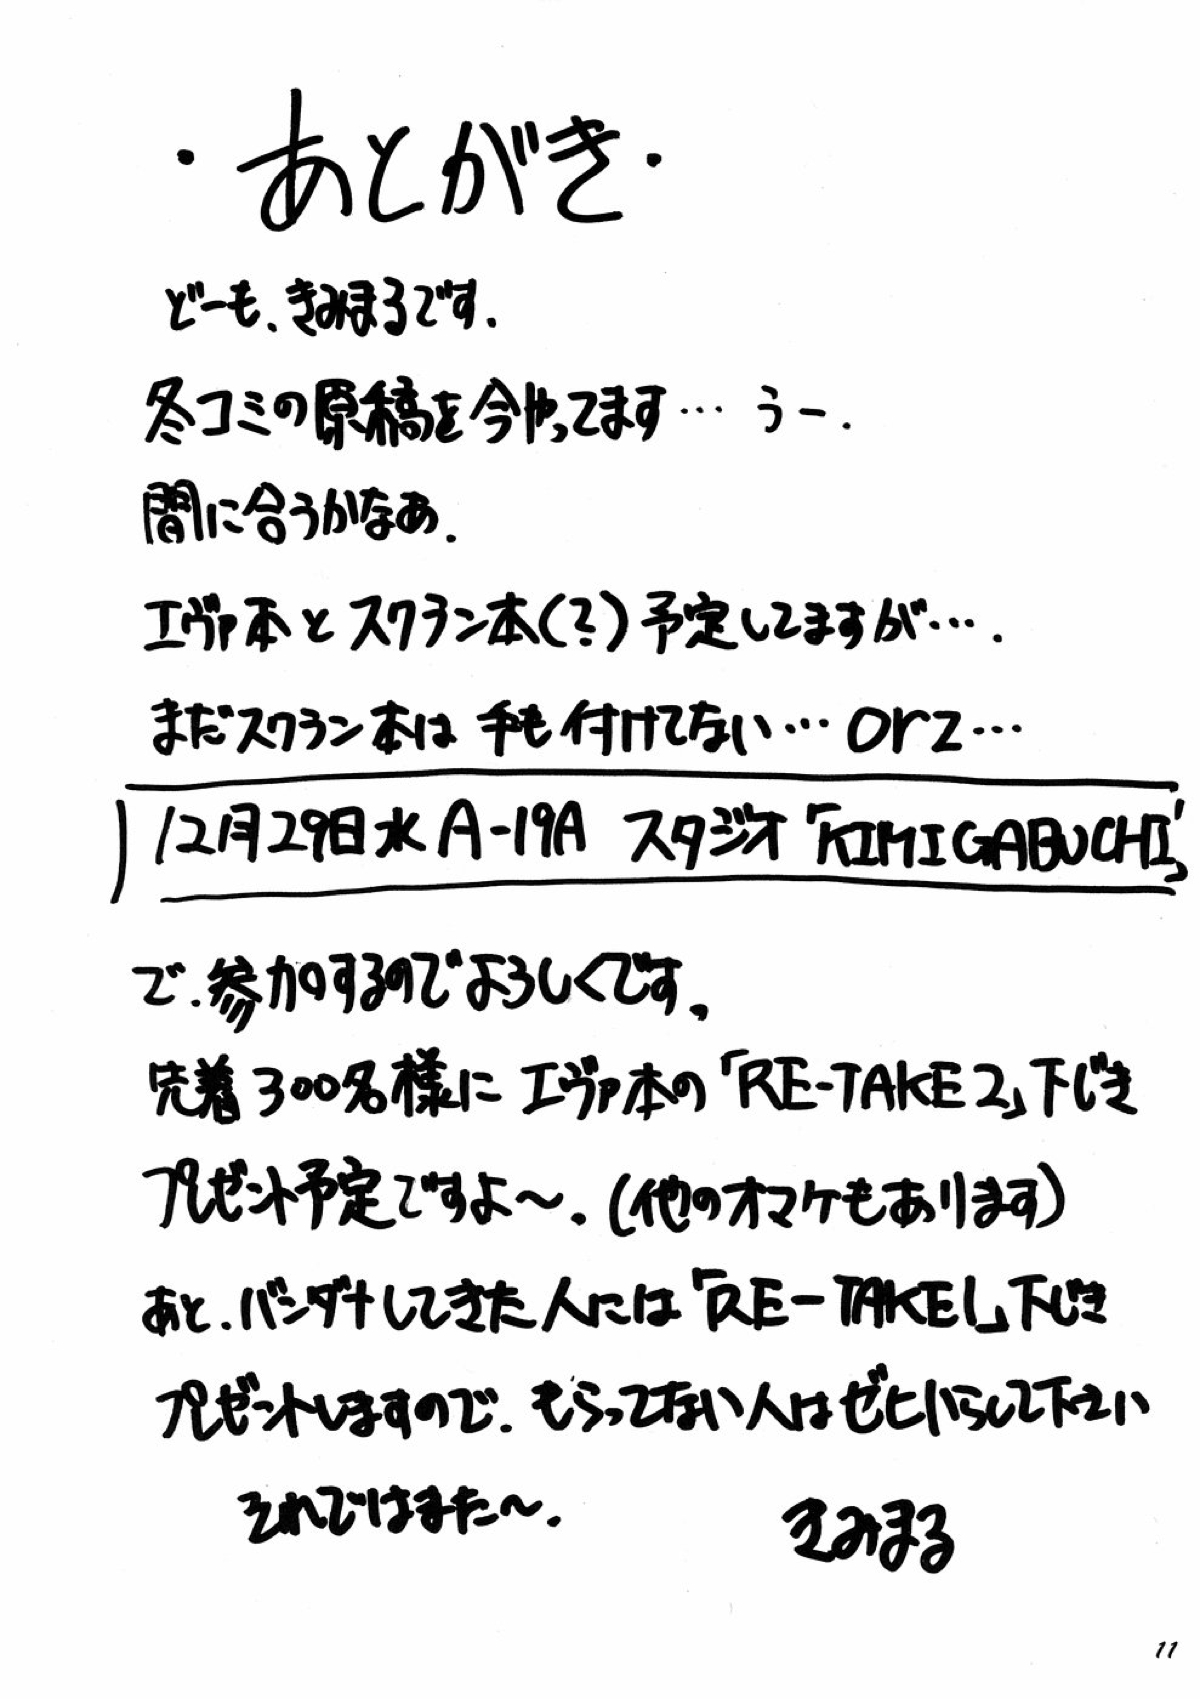 ・あとがき・
どーも、きみまるです.
冬コミの原稿を今やってます… うー.
間に合うかなあ.
エヴァ本とスクラン本(?)予定してますが….
まだスクラン本は手も付けてない…orz…
12月29日水 A-19A スタジオ「KIMIGABUCHI」
で、参加するのでよろしくです。
先着300名様にエヴァ本の「RE-TAKE2」下じき
プレゼント予定ですよ〜.(他のオマケもあります)
あと、バンダナしてきた人には「RE-TAKE1」下じき
プレゼントしますので、もらってない人はゼヒいらして下さい
それではまた〜.
きみまる
11